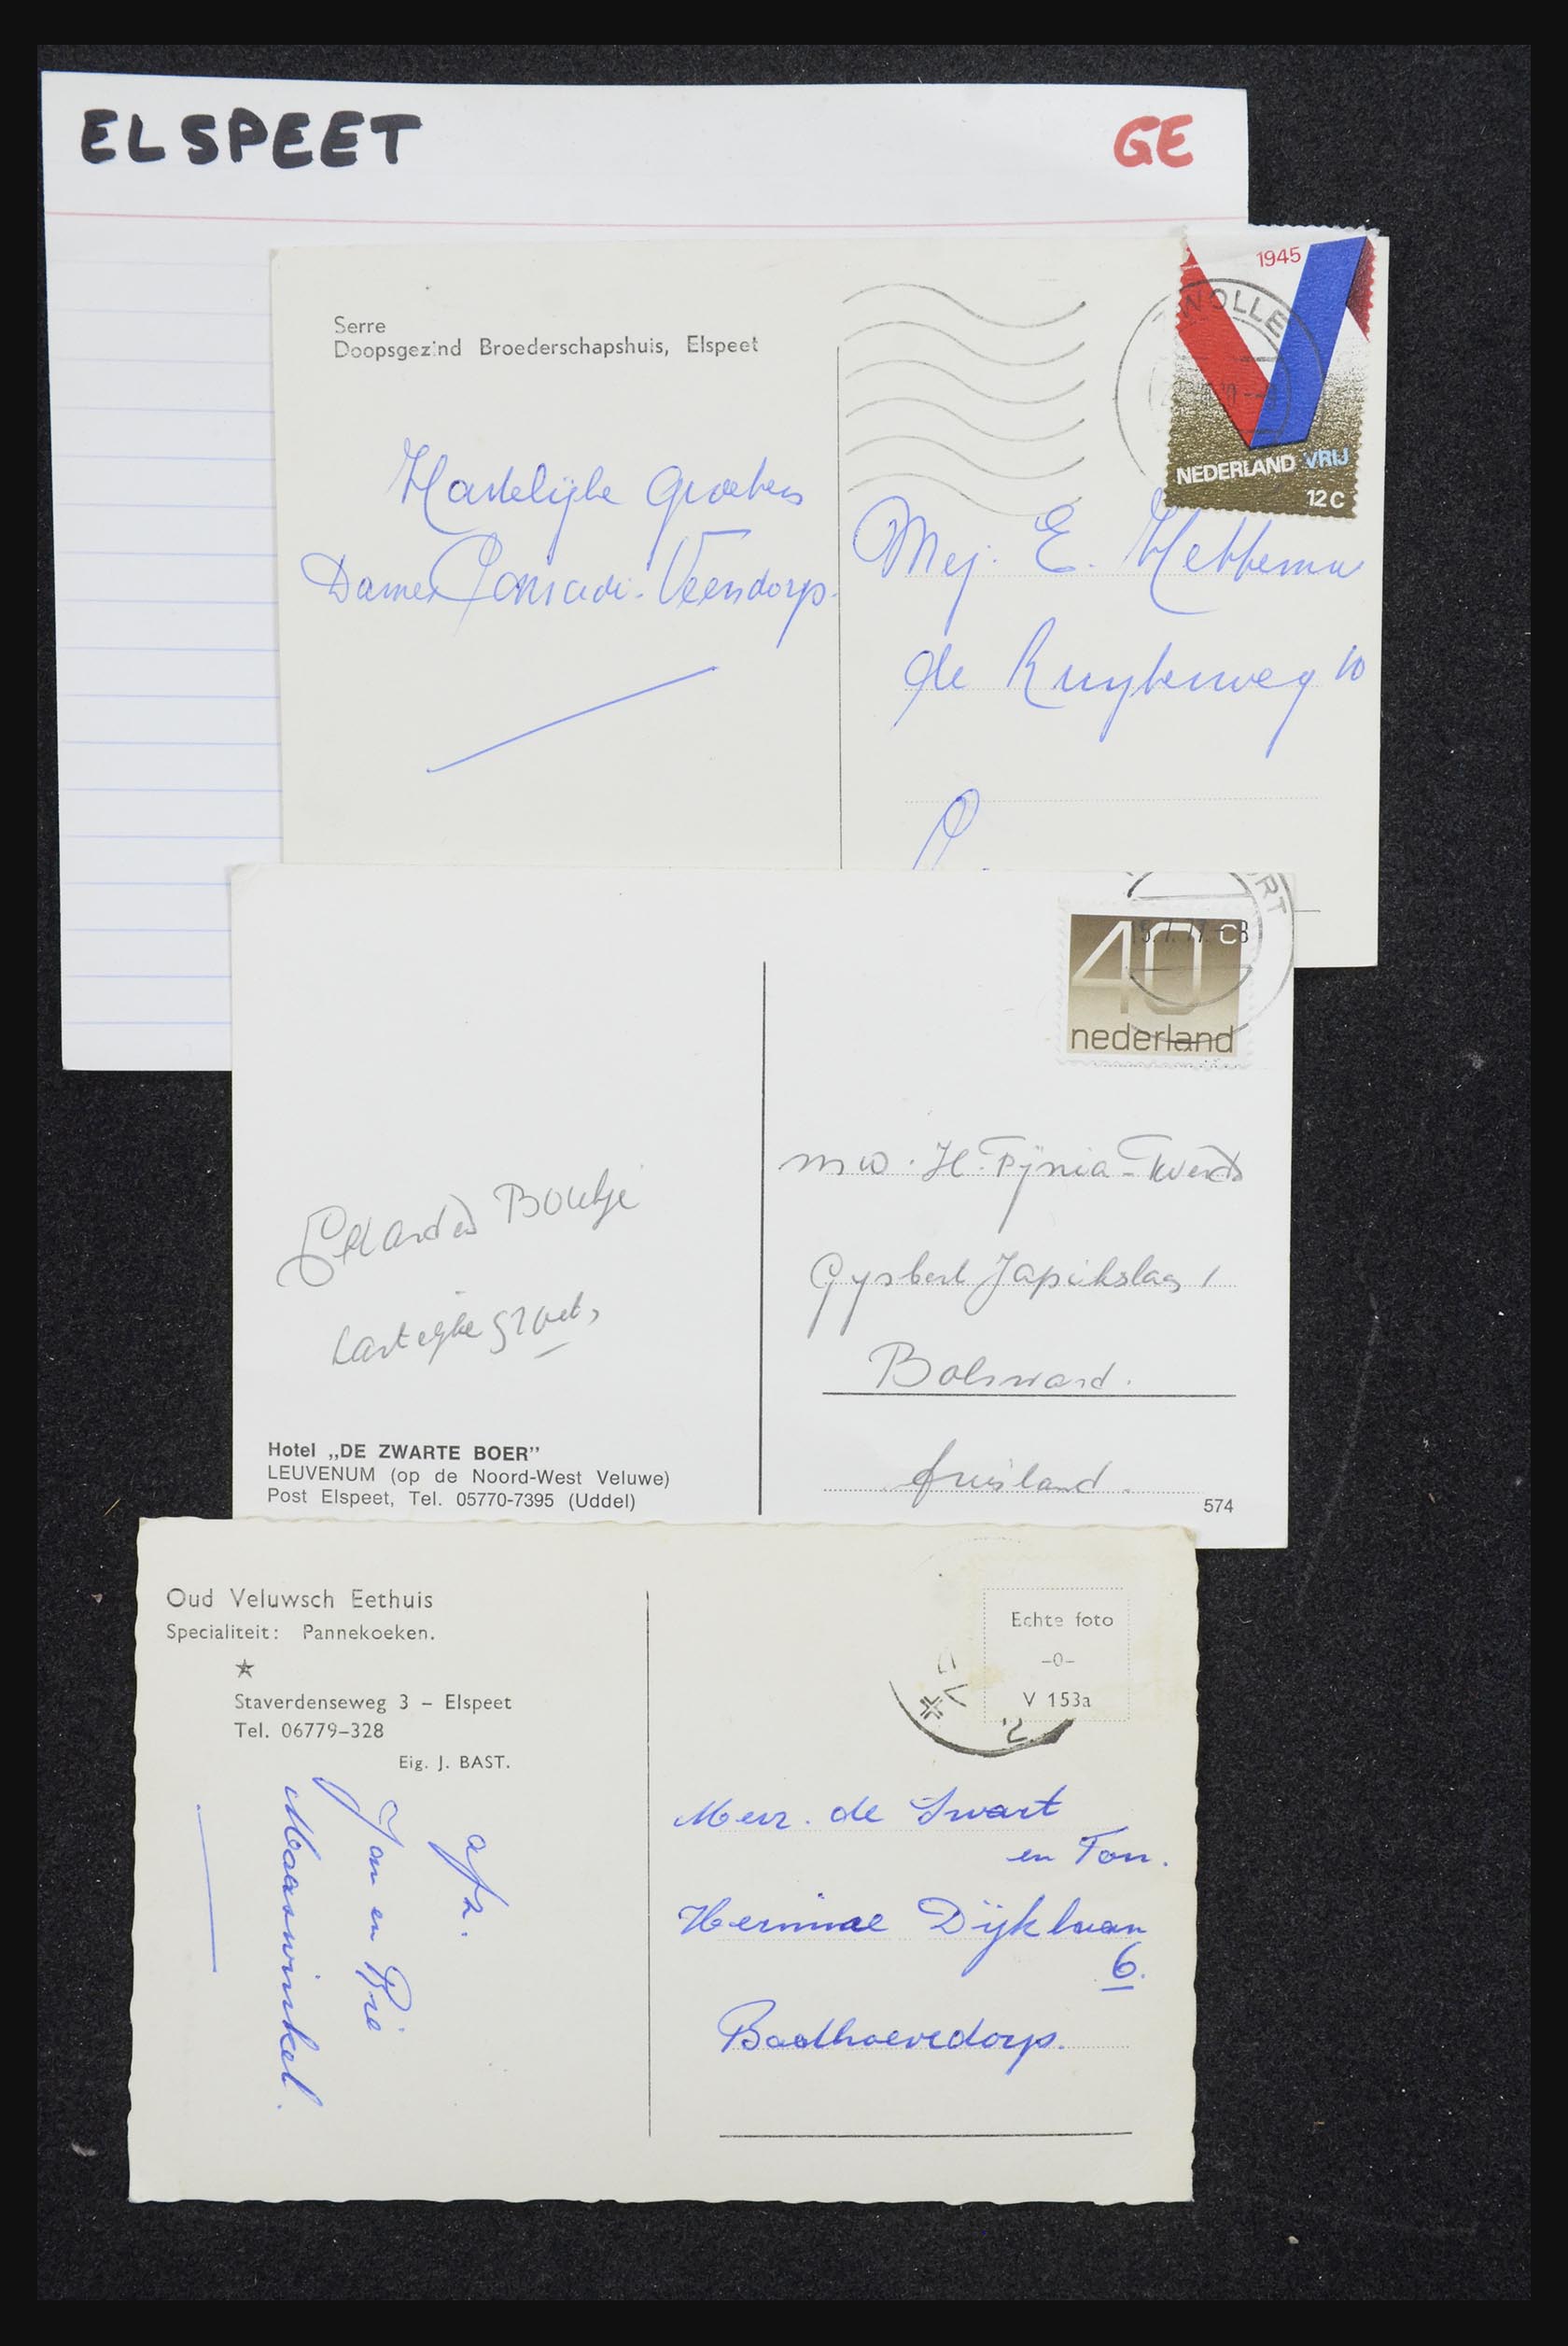 ELSPEET
GE
Serre
Doopsgezind Broederschapshuis, Elspeet
1945
NEDERLAND VRIJ
12C
Hartelijke groeten
Dames Conradi-Veendorp.
Mej. E. Hettema
de Ruyterweg 10
40c
nederland
5.7.77.-8
mw. H.
Gysbert Japikslaan 1
Bolsward.
friesland.
hartelijke groet,
Hotel „DE ZWARTE BOER”
LEUVENUM (op de Noord-West Veluwe)
Post Elspeet, Tel. 05770-7395 (Uddel)
574
Oud Veluwsch Eethuis
Specialiteit: Pannekoeken.
Staverdenseweg 3 – Elspeet
Tel. 06779–328
Eig. J. BAST.
Echte foto
–0–
V 153a
afz.
Jan en Rie
Maaswinkel.
Mevr. de Swart
en Ton.
Herminae Dijklaan
6.
Badhoevedorp.